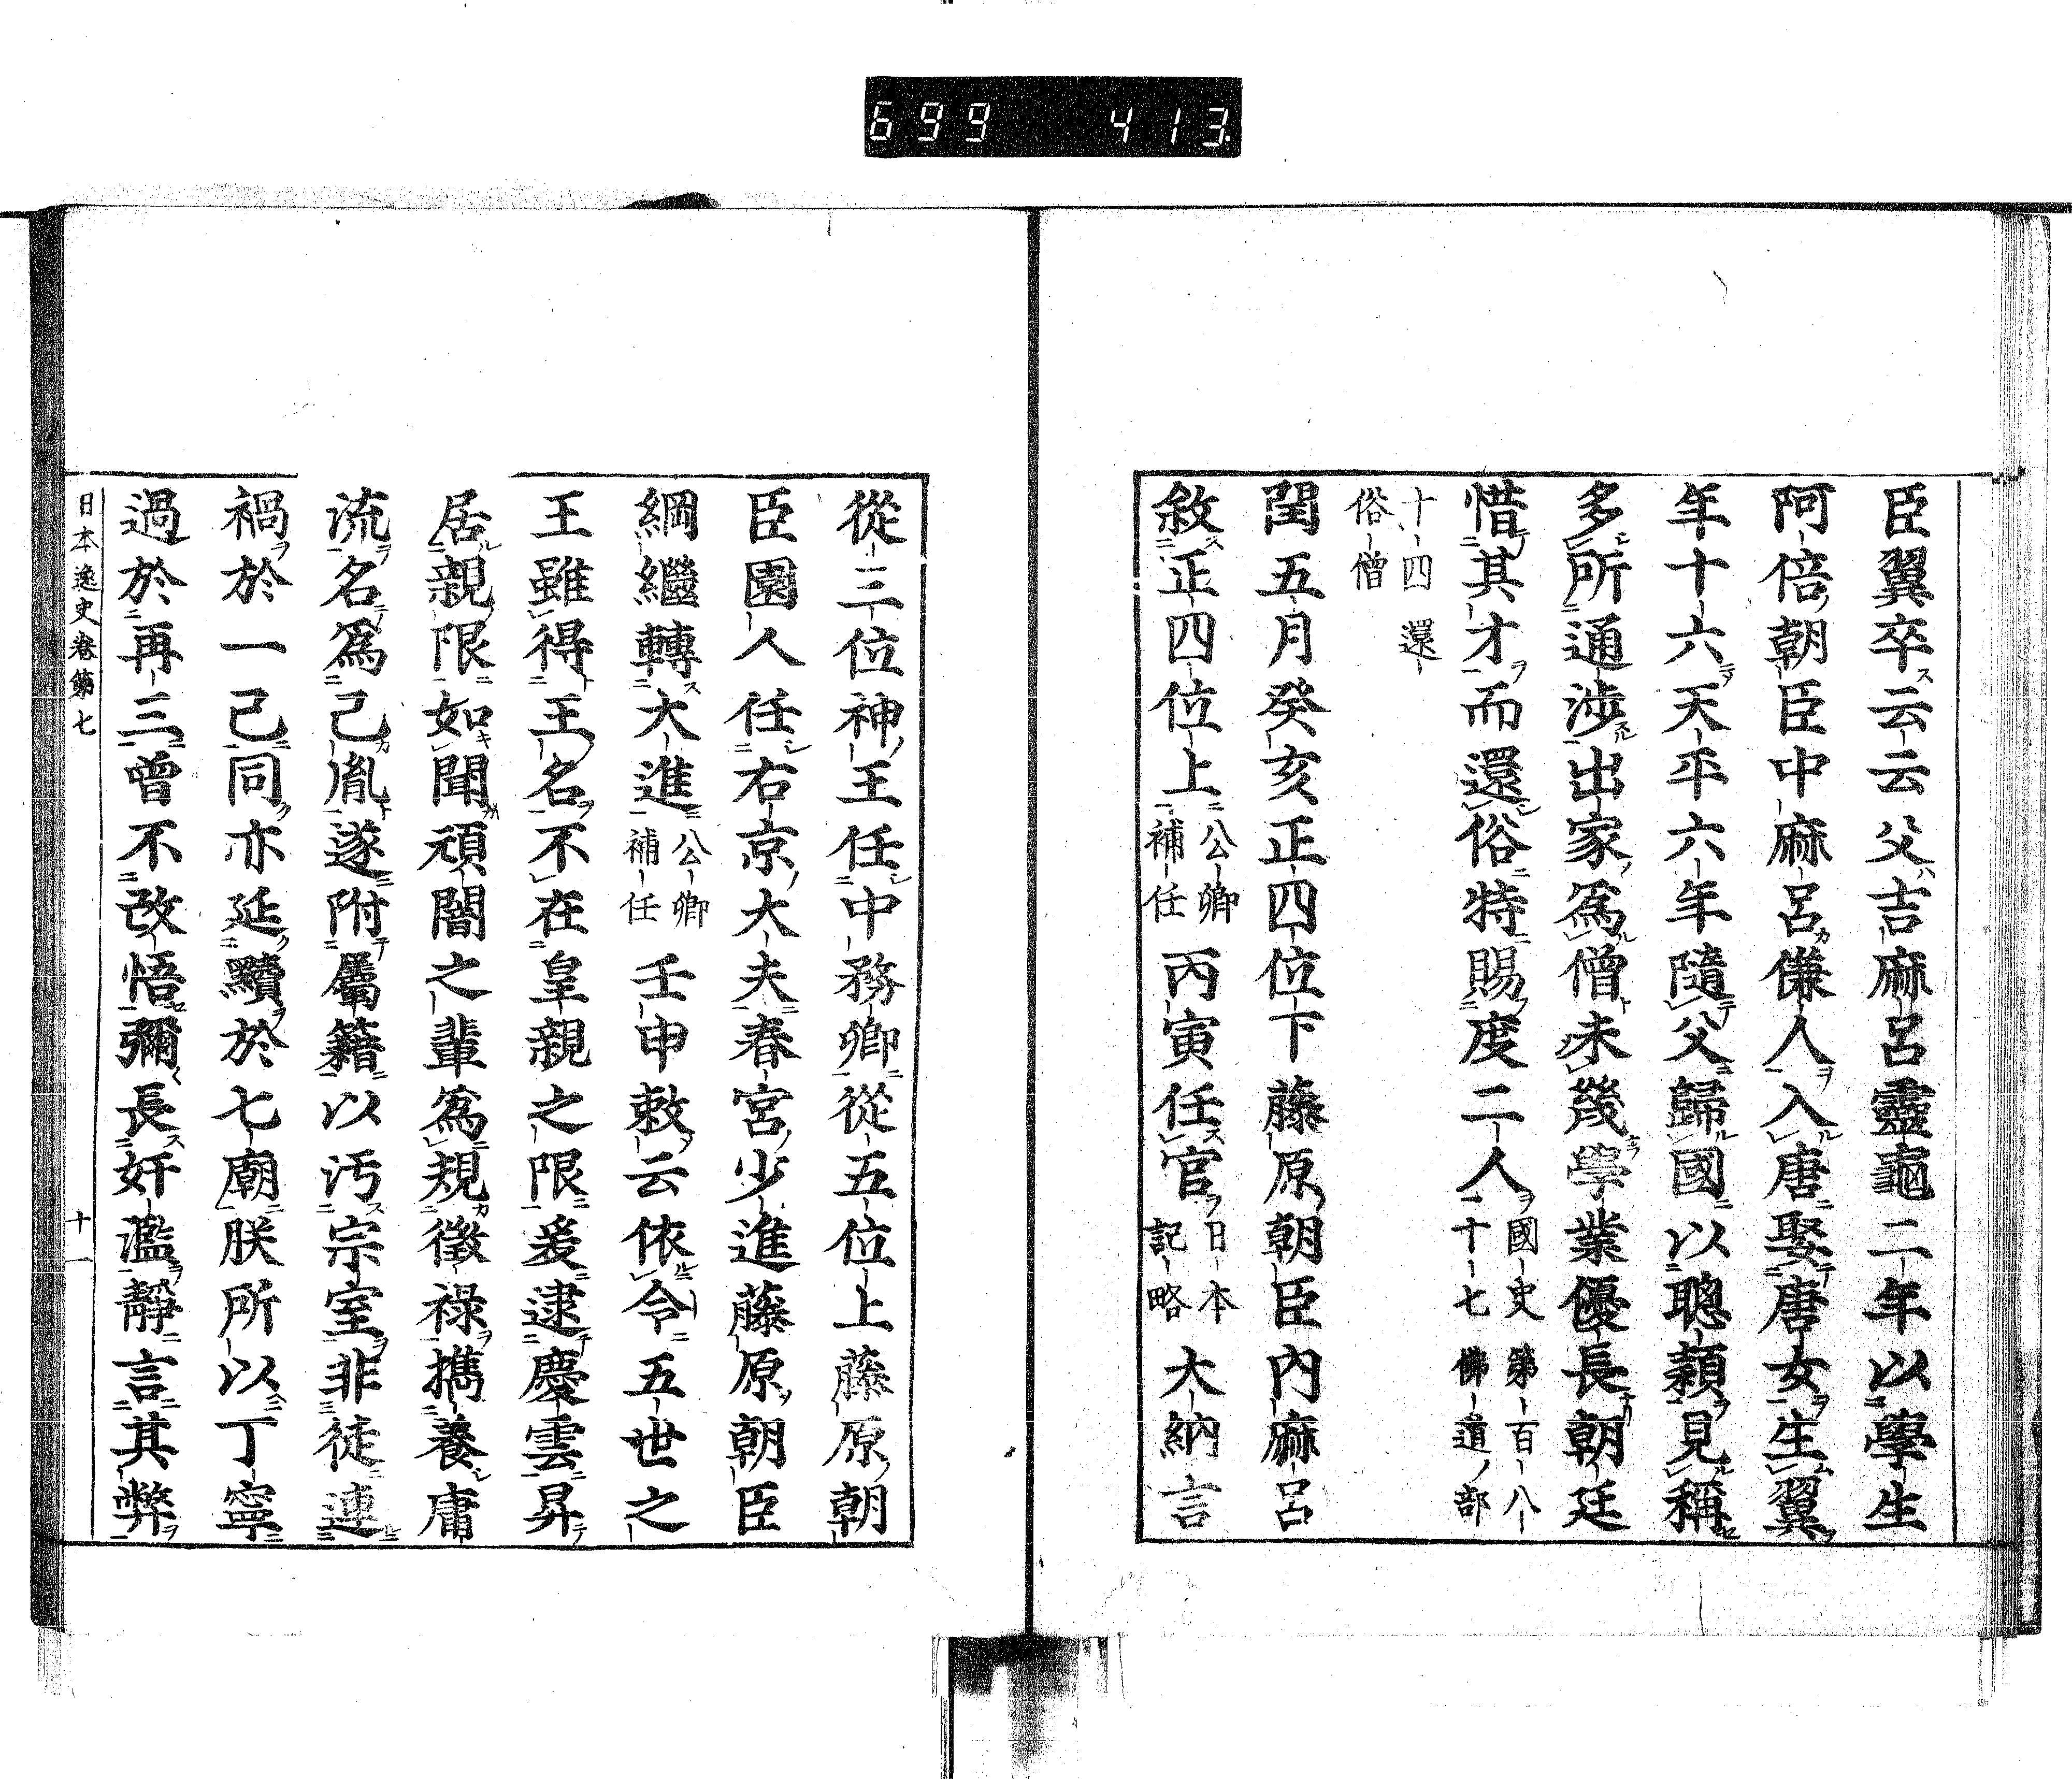 699 413
臣翼卒云云父吉麻呂靈龜二年以學生
阿倍朝臣中麻呂傔人入唐娶唐女生翼
年十六天平六年隨父歸國以聰穎見稱
多所通涉出家爲僧未幾學業優長朝廷
惜其才而還俗特賜度二人國史第百八
十七佛道部
十四還
俗僧
閏五月癸亥正四位下藤原朝臣內麻呂
敘正四位上公卿
補任丙寅任官日本
記略大納言
從三位神王任中務卿從五位上藤原朝
臣園人任右京大夫春宮少進藤原朝臣
綱繼轉大進公卿
補任壬申敕云依令五世之
王雖得王名不在皇親之限爰逮慶雲昇
居親限如聞頑闇之輩爲規徵祿攜養庸
流名爲己胤遂附屬籍以汚宗室非徒連
禍於一己同亦延黷於七廟朕所以丁寧
過於再三曾不改悟彌長奸濫靜言其弊
日本逸史卷第七 十一